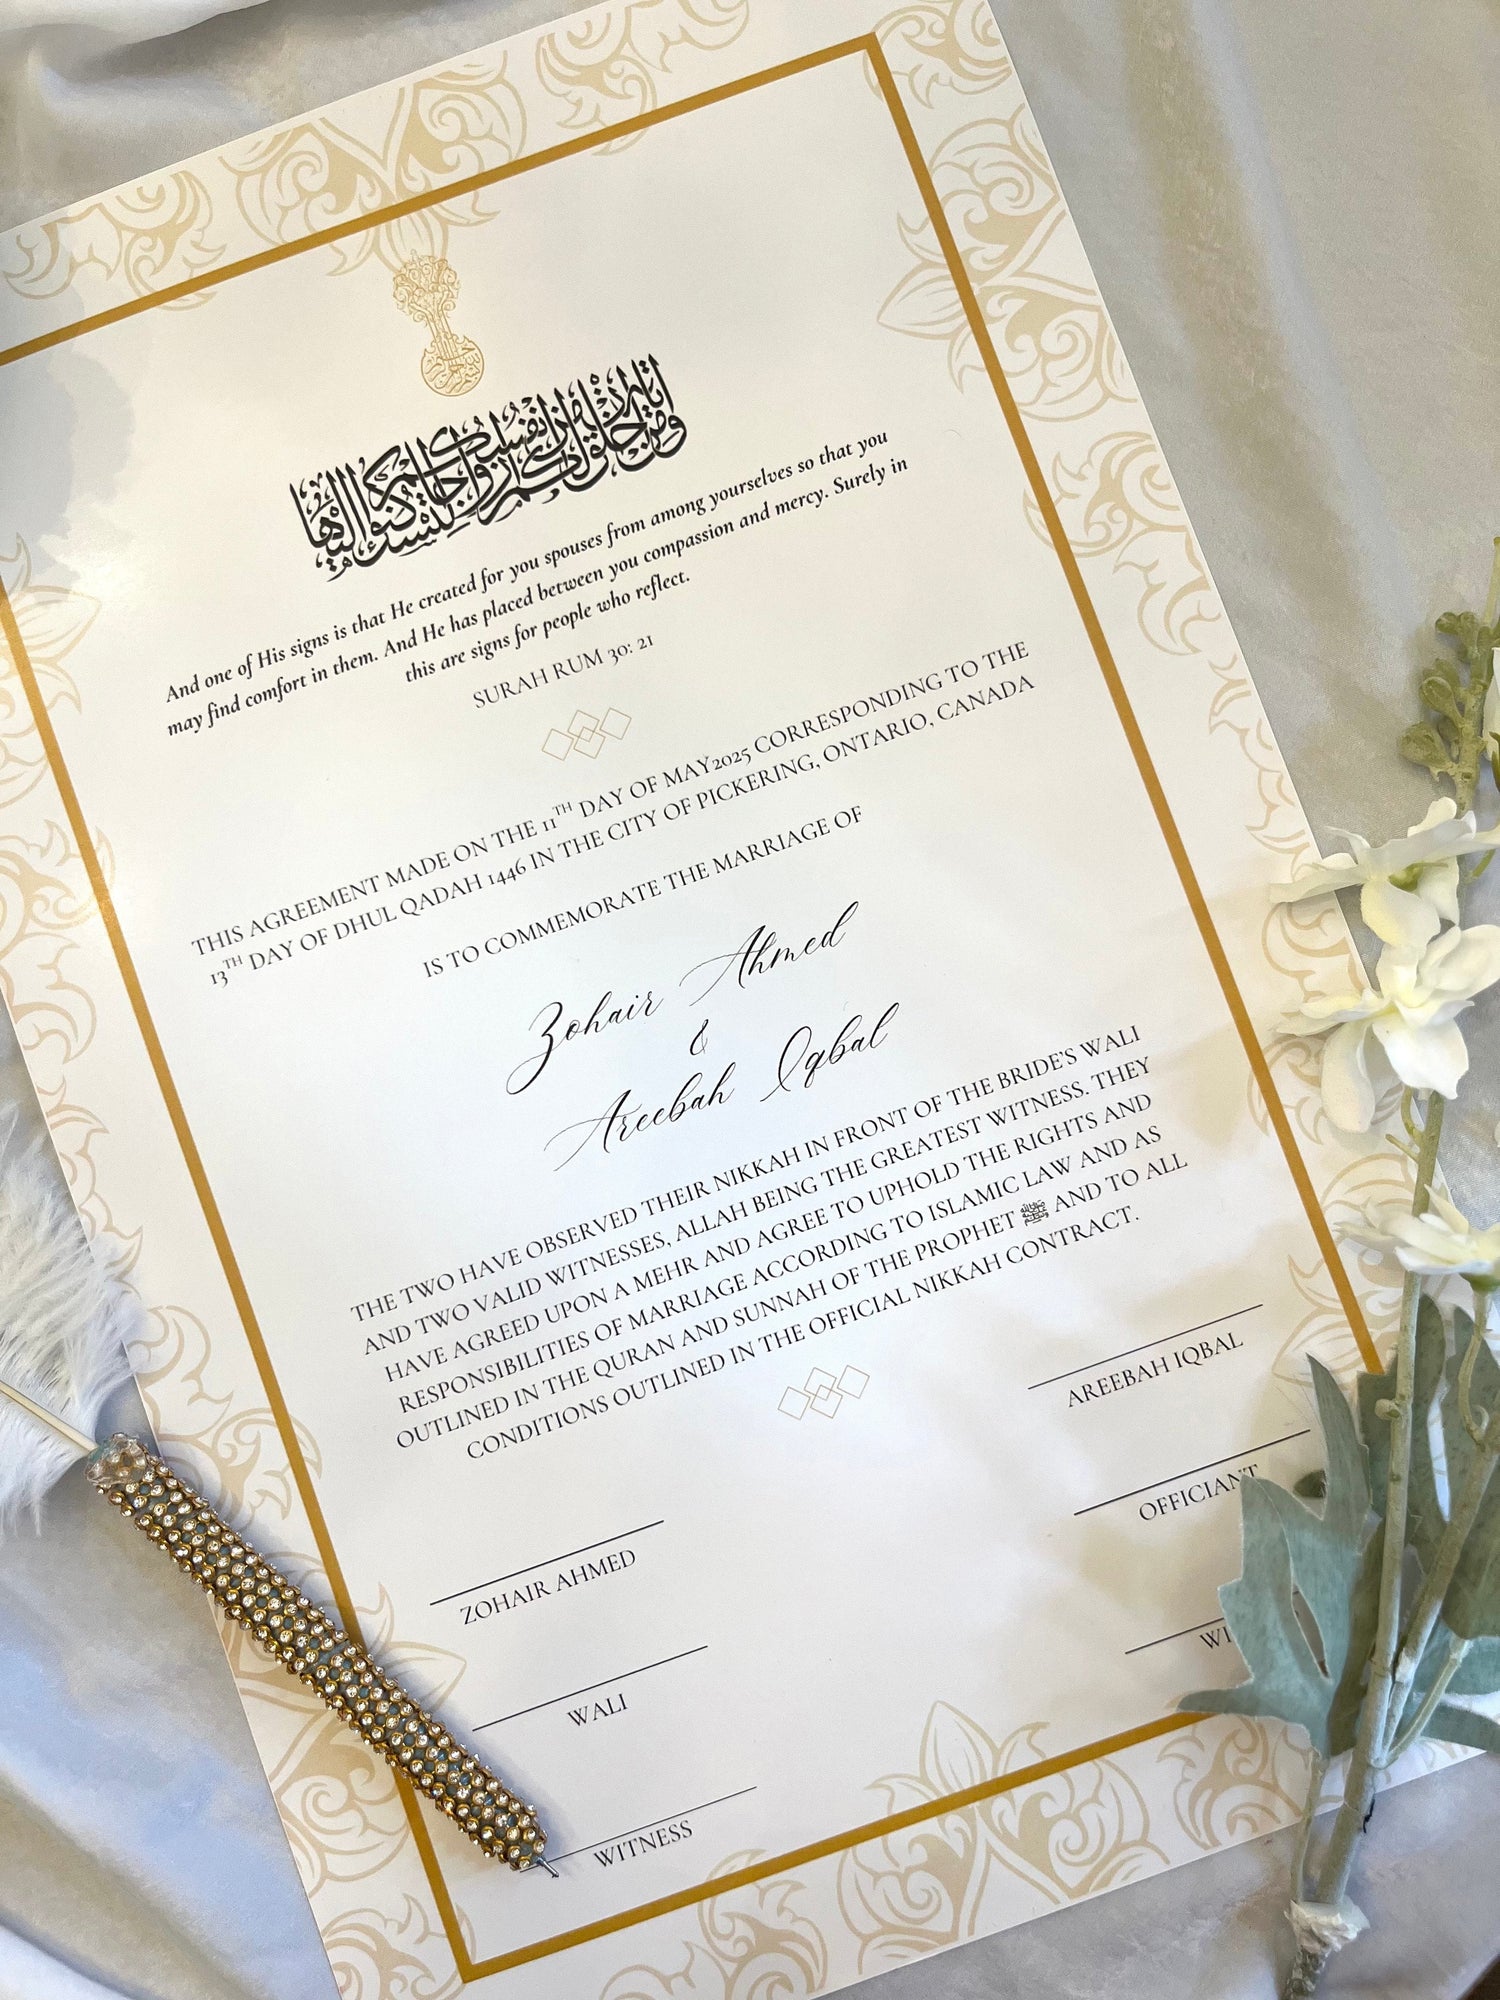 ومن آياته أن خلق لكم من أنفسكم أزواجا لتسكنوا إليها
And one of His signs is that He created for you spouses from among yourselves so that you
may find comfort in them. And He has placed between you compassion and mercy. Surely in
this are signs for people who reflect.
SURAH RUM 30: 21
THIS AGREEMENT MADE ON THE 11TH DAY OF MAY2025 CORRESPONDING TO THE
13TH DAY OF DHUL QADAH 1446 IN THE CITY OF PICKERING, ONTARIO, CANADA
IS TO COMMEMORATE THE MARRIAGE OF
Zohair Ahmed
&
Areebah Iqbal
THE TWO HAVE OBSERVED THEIR NIKKAH IN FRONT OF THE BRIDE'S WALI
AND TWO VALID WITNESSES, ALLAH BEING THE GREATEST WITNESS. THEY
HAVE AGREED UPON A MEHR AND AGREE TO UPHOLD THE RIGHTS AND
RESPONSIBILITIES OF MARRIAGE ACCORDING TO ISLAMIC LAW AND AS
OUTLINED IN THE QURAN AND SUNNAH OF THE PROPHET ﷺ AND TO ALL
CONDITIONS OUTLINED IN THE OFFICIAL NIKKAH CONTRACT.
ZOHAIR AHMED
AREEBAH IQBAL
WALI
OFFICIANT
WITNESS
WI